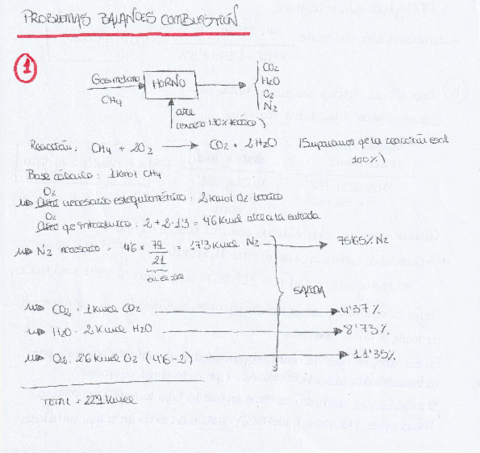 PROBLEMAS BALANCES COMBUSTIÓN
1
Gas metano
CH4
HORNO
CO2
H2O
O2
N2
aire
(exceso 130% teórico)
Reacción: CH4 + 2O2 → CO2 + 2H2O (Supondremos que la reacción es al
100%)
Base cálculo: 1 kmol CH4
O2
Aire necesario estequiométrico: 2 kmol O2 teórico
O2
Aire que introducimos: 2 + 2·1'3 = 4'6 kmol aire a la entrada
N2 necesario = 4'6 × 79/21 = 17'3 kmol N2 → 75'65% N2
SALIDA
CO2 = 1 kmol CO2 → 4'37%
H2O = 2 kmol H2O → 8'73%
O2 = 2'6 kmol O2 (4'6-2) → 11'35%
TOTAL = 22'9 kmol